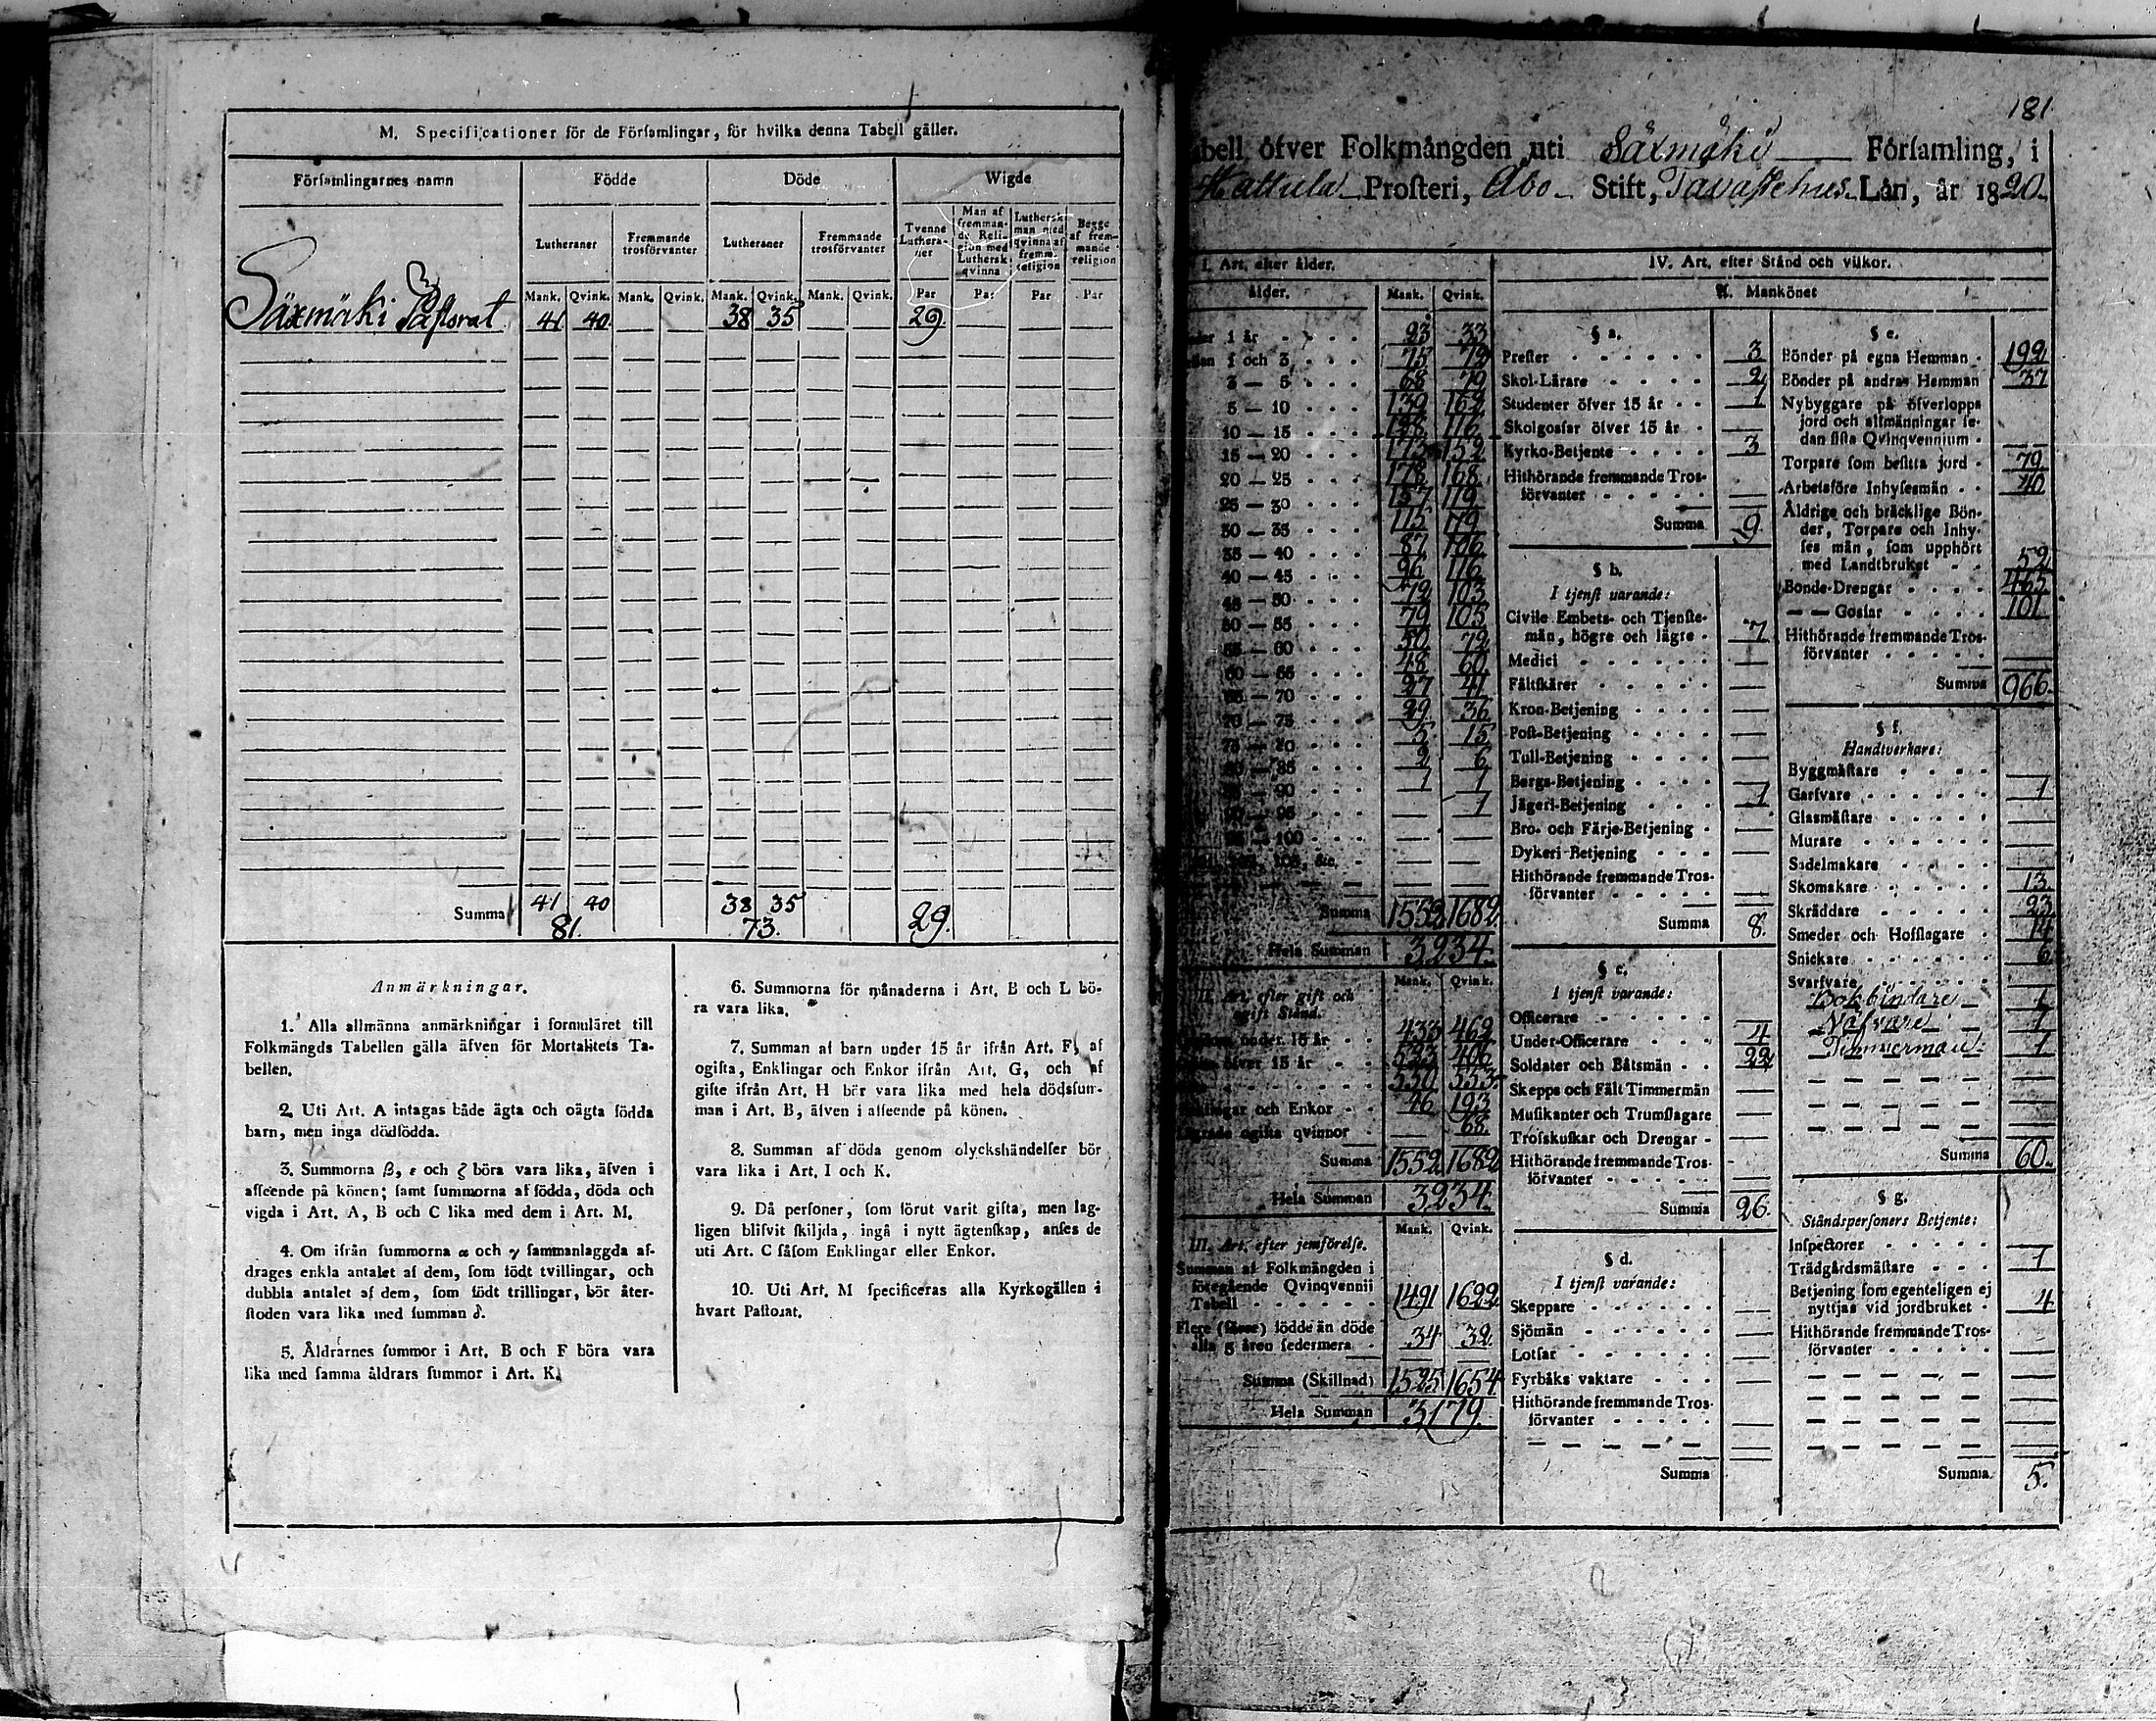 M. Specificationer för de Förſamlingar, för hvilka denna Tabell gäller.
Förſamlingarnes namn Födde Döde Wigde
Lutheraner Fremmande trosförvanter Lutheraner Fremmande trosförvanter Tvenne Lutheraner Man af fremmande Religion med Lutherſk qvinna Lutherſk man med qvinna af fremm. religion Begge af fremmande religion
Mank. Qvink. Mank. Qvink. Mank. Qvink. Mank. Qvink. Par Par Par Par
Säxmäki Paſtorat 41 40 38 35 29
Summa 41 40 38 35 29.
81. 73.
Anmärkningar.
1. Alla allmänna anmärkningar i formuläret till
Folkmängds Tabellen gälla äfven för Mortalitets Ta-
bellen.
2. Uti Art. A intagas både ägta och oägta födda
barn, men inga dödfödda.
3. Summorna β, ε och ζ böra vara lika, äfven i
afſeende på könen; ſamt ſummorna af födda, döda och
vigda i Art. A, B och C lika med dem i Art. M.
4. Om ifrån ſummorna α och γ ſammanlaggda af-
drages enkla antalet af dem, ſom födt tvillingar, och
dubbla antalet af dem, ſom födt trillingar, bör åter-
ſtoden vara lika med ſumman δ.
5. Åldrarnes ſummor i Art. B och F böra vara
lika med ſamma åldrars ſummor i Art. K.
6. Summorna för månaderna i Art. B och L bö-
ra vara lika.
7. Summan af barn under 15 år ifrån Art. F, af
ogifta, Enklingar och Enkor ifrån Art. G, och af
gifte ifrån Art. H bör vara lika med hela dödsſum-
man i Art. B, äfven i afſeende på könen.
8. Summan af döda genom olyckshändelſer bör
vara lika i Art. I och K.
9. Då perſoner, ſom förut varit gifta, men lag-
ligen blifvit ſkiljda, ingå i nytt ägtenſkap, anſes de
uti Art. C ſåſom Enklingar eller Enkor.
10. Uti Art. M ſpecificeras alla Kyrkogällen i
hvart Paſtorat.
181
bell öfver Folkmängden uti Säxmäki Förſamling, i
Hattula Proſteri, Åbo Stift, Tavaſtehus Län, år 1820.
I. Art. efter ålder.
ålder. Mank. Qvink.
1 år 23 33
1 och 3 75 72
3 — 5 68 79
5 — 10 139 162
10 — 15 128 116
15 — 20 173 152
20 — 25 178 168
25 — 30 157 119
30 — 35 115 119
35 — 40 87 106
40 — 45 96 116
45 — 50 72 103
50 — 55 79 105
55 — 60 50 72
60 — 65 48 60
65 — 70 27 41
70 — 75 29 36
75 — 80 5 15
80 — 85 2 6
85 — 90 1 1
90 — 95 1
95 — 100
Summa 1552 1682
Hela Summan 3234.
Mank. Qvink.
II. Art. efter gift och
ogift Stånd.
under 15 år 433 462
öfver 15 år 523 406
550 553
och Enkor 46 193
ogifta qvinnor 68
Summa 1552 1682
Hela Summan 3234.
Mank. Qvink.
III. Art. efter jemförelſe.
Summan af Folkmängden i
föregående Qvinqvennii
Tabell 1491 1622
Flere (färre) födde än döde
alla 5 åren ſedermera 34 32
Summa (Skillnad) 1525 1654
Hela Summan 3179.
IV. Art. efter Stånd och vilkor.
A. Mankönet
§ a.
Preſter 3
Skol-Lärare 2
Studenter öfver 15 år 1
Skolgoſſar öfver 15 år
Kyrko-Betjente 3
Hithörande fremmande Tros-
förvanter
Summa 9
§ b.
I tjenſt varande:
Civile Embets- och Tjenſte-
män, högre och lägre 7
Medici
Fältſkärer
Kron-Betjening
Poſt-Betjening
Tull-Betjening
Bergs-Betjening
Jägeri-Betjening 1
Bro- och Färje-Betjening
Dykeri-Betjening
Hithörande fremmande Tros-
förvanter
Summa 8.
§ c.
I tjenſt varande:
Officerare
Under-Officerare 4
Soldater och Båtsmän 22
Skepps och Fält Timmermän
Muſikanter och Trumſlagare
Troſskuſkar och Drengar
Hithörande fremmande Tros-
förvanter
Summa 26.
§ d.
I tjenſt varande:
Skeppare
Sjömän
Lotſar
Fyrbåks vaktare
Hithörande fremmande Tros-
förvanter
Summa
§ e.
Bönder på egna Hemman 192
Bönder på andras Hemman 37
Nybyggare på öfverlopps
jord och allmänningar ſe-
dan ſiſta Qvinqvennium
Torpare ſom beſitta jord 79
Arbetsföre Inhyſesmän 40
Åldrige och bräcklige Bön-
der, Torpare och Inhy-
ſes män, ſom upphört
med Landtbruket 52
Bonde-Drengar 465
— — Goſſar 101
Hithörande fremmande Tros-
förvanter
Summa 966.
§ f.
Handtverkare:
Byggmäſtare
Garfvare 1
Glasmäſtare
Murare
Sadelmakare
Skomakare 13
Skräddare 23
Smeder och Hofſlagare 14
Snickare 6
Svarfvare
Bokbindare 1
Väfvare 1
Timmerman 1
Summa 60.
§ g.
Ståndsperſoners Betjente:
Inſpectorer
Trädgårdsmäſtare 1
Betjening ſom egenteligen ej
nyttjas vid jordbruket 4
Hithörande fremmande Tros-
förvanter
Summa 5.